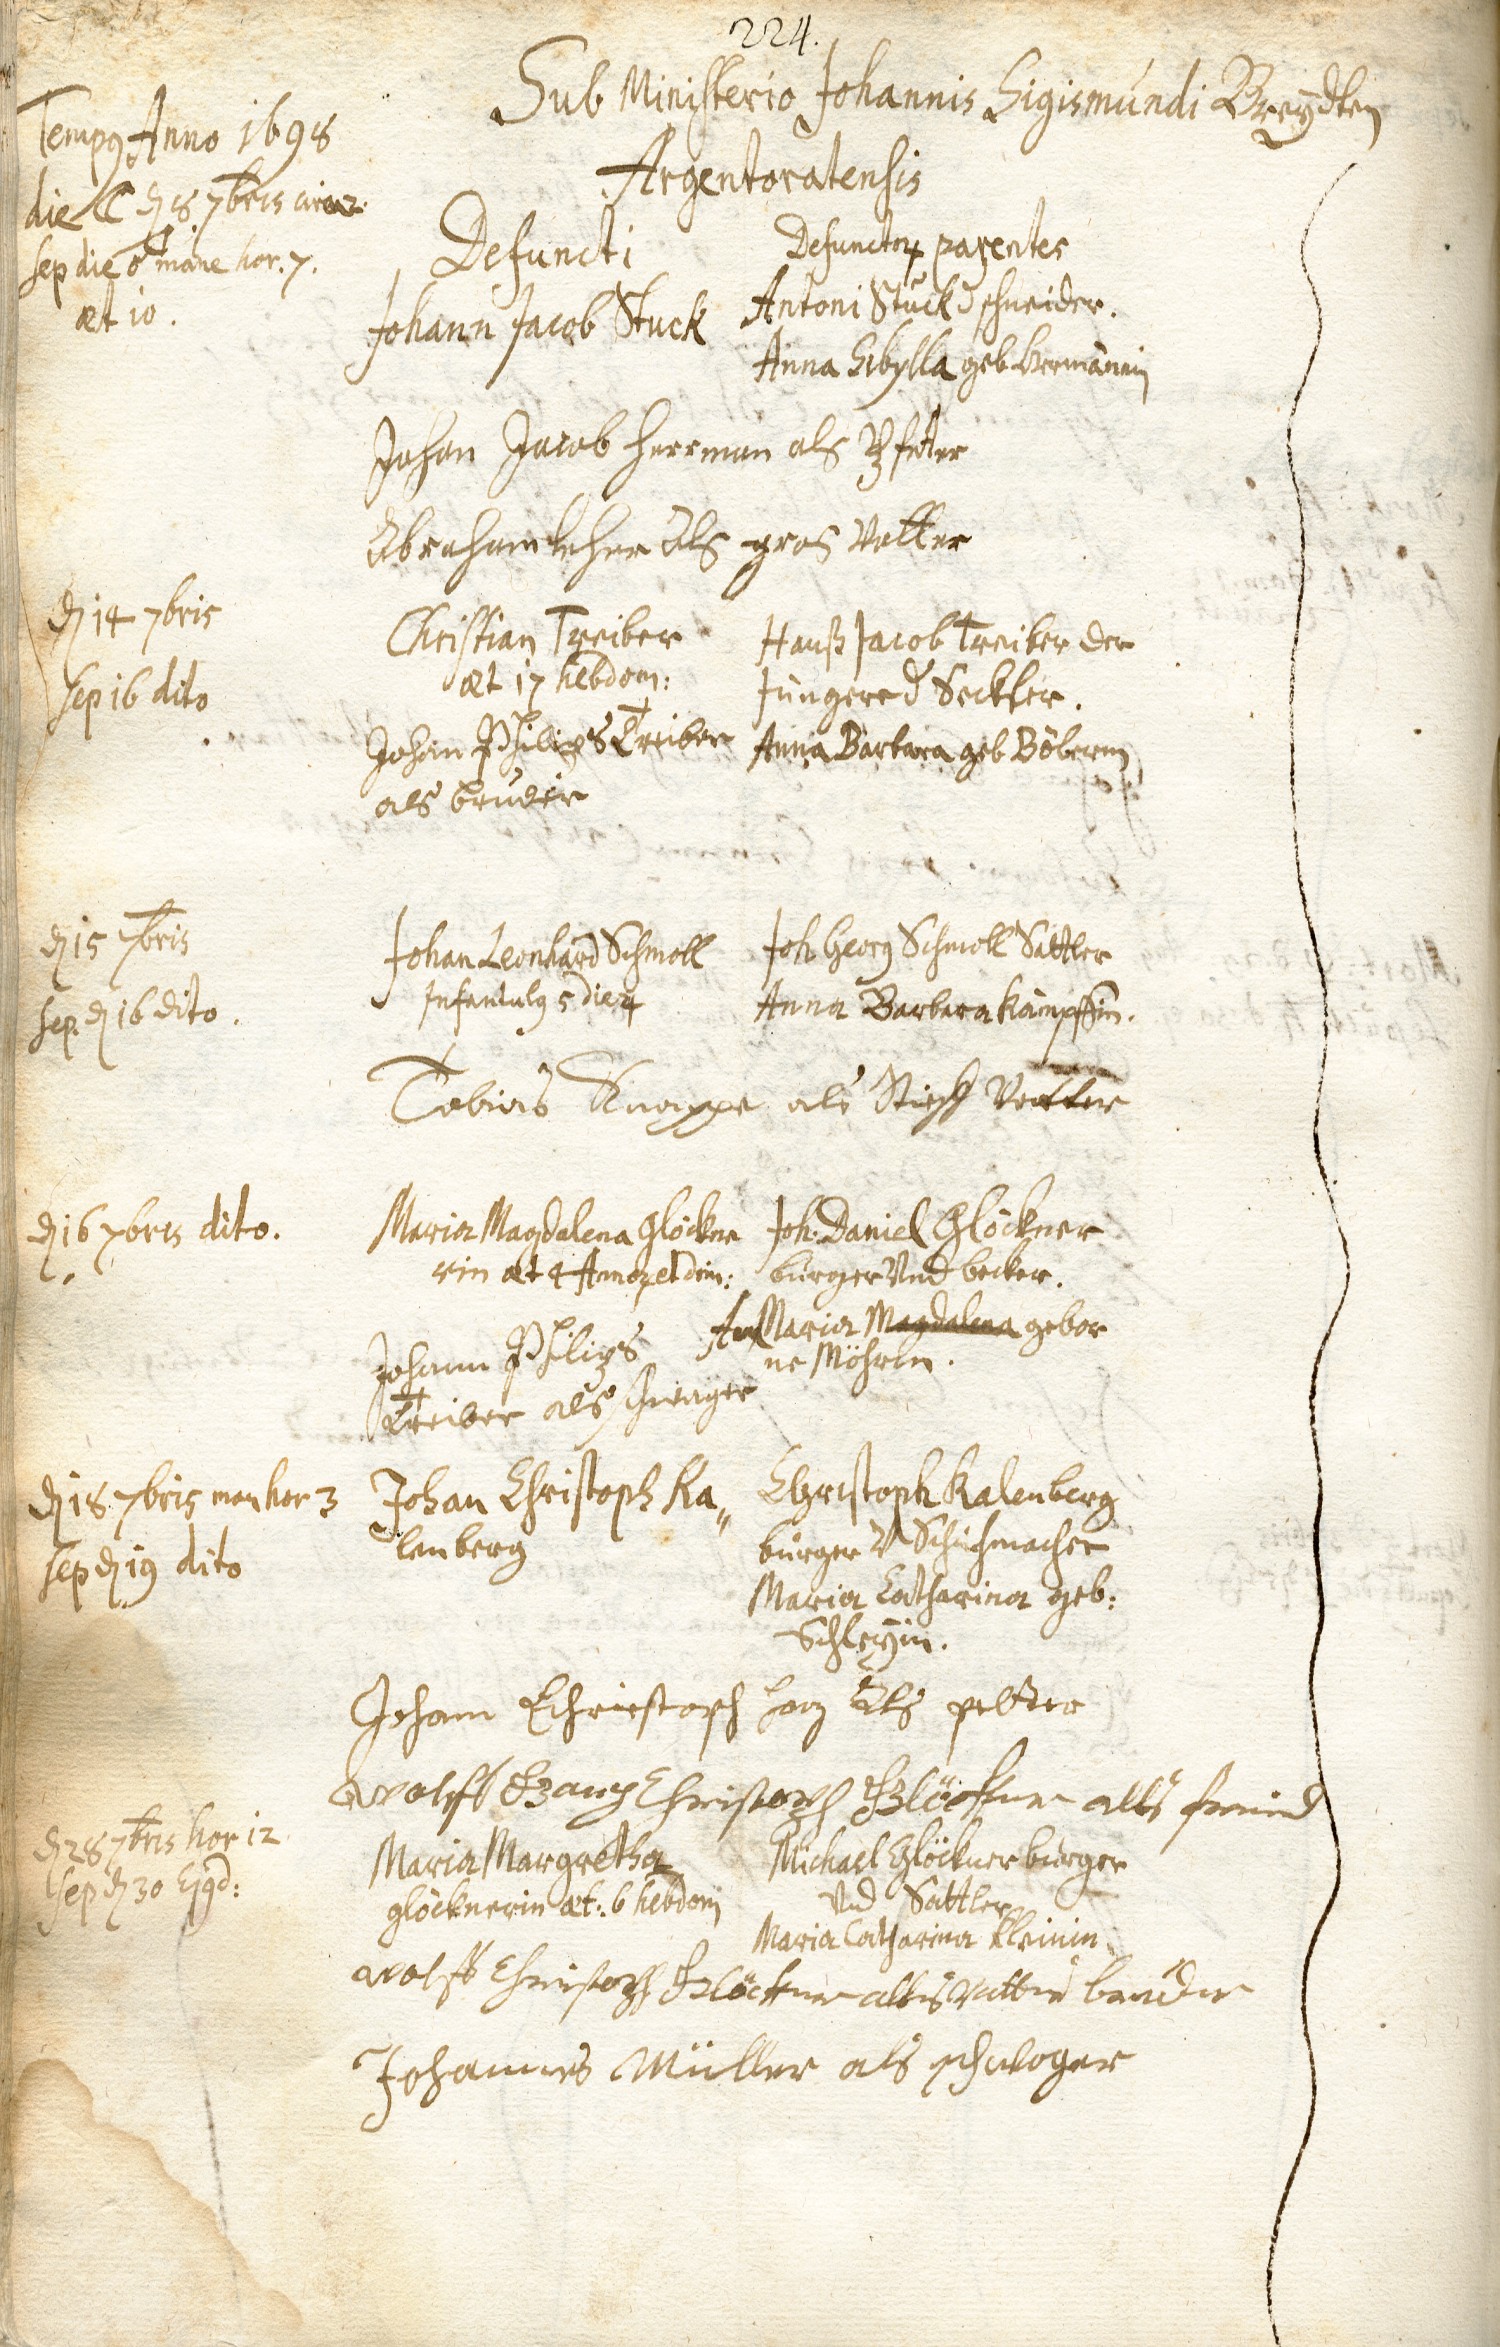 224.
Sub Ministerio Johannis Sigismundi Breydten
Argentoratensis
Temp9 Anno 1698
die ☾ d 8 7bris circa 2.
sep die ♂ mane hor. 7.
æt 10.
Defuncti
Defunctor parentes
Johann Jacob Stuck
Antoni Stuck d schneider.
Anna Sibylla geb
Johan Jacob Herrman als
Abraham als gros Vatter
d 14 7bris
sep 16 dito
Christian Treiber
æt 17 hebdom:
Hanß Jacob Treiber der
Jüngere d Seckler.
Anna Barbara geb Böberin
Johan Philips Treiber
als bruder
d 15 7bris
sep. d 16 dito.
Johan Leonhard Schmoll
Infantul9 5 dier
Joh Georg Schmoll Sattler
Anna Barbara Kämpffin.
Tobias Knappe als Vatter
d 16 7bris dito.
Maria Magdalena Glöckne
rin æt 4 Annor et dim:
Joh. Daniel Glöckner
burger Und becker.
Maria Magdalena gebor
ne Möhrin.
Johann Philips
Treiber als schwager
d 18 7bris man hor 3
sep d 19 dito
Johan Christoph Ka„
lenberg
Christoph Kalenberg
burger V Schuhmacher
Maria Catharina geb:
Schleyin.
Johann Christoph als petter
Wolff Christoph Glöckner alls freind
d 28 7bris hor 12
sep d 30 Ej9d:
Maria Margretha
glöcknerin æt: 6 hebdom
Michael Glöckner burger
Vnd Sattler
Maria Catharina Kleinin
Wolff Christoph Glöckner alls Vatters bruder
Johannes Müller als schwoger